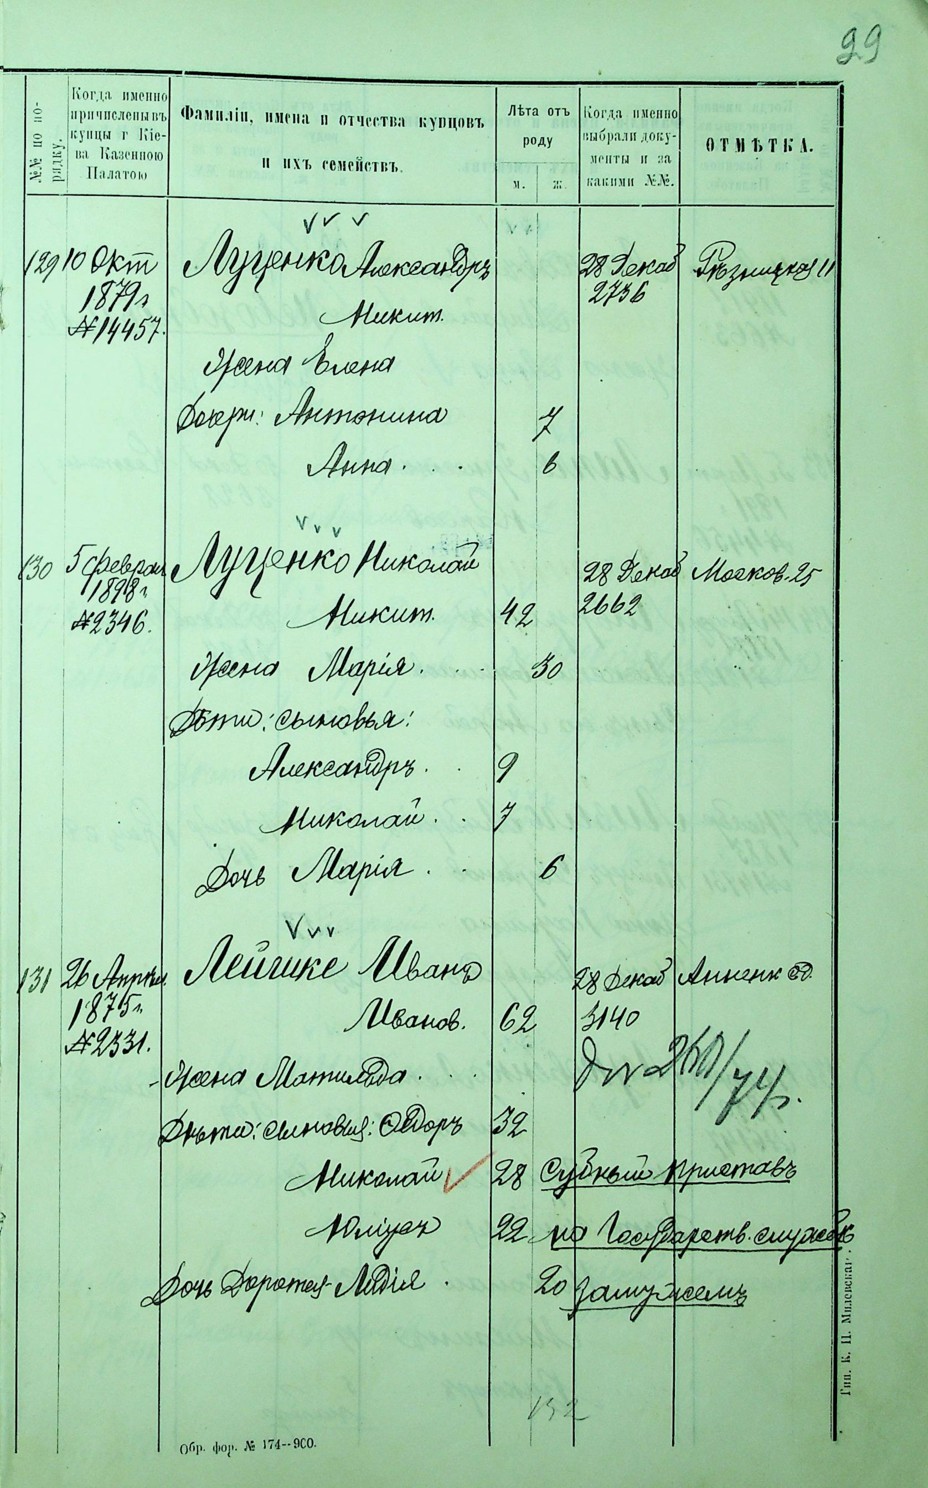 29
№№ по по-
рядку.
Когда именно
причислены въ
купцы г Кіе-
ва Казенною
Палатою
Фамиліи, имена и отчества купцовъ
и ихъ семействъ.
Лѣта отъ
роду
м. ж.
Когда именно
выбрали доку-
менты и за
какими №№.
ОТМѢТКА.
129 10 Окт Луценко Александръ 28 Декаб Рѣзницкая 11
1879 г 2736
№ 14457. Микит.
Жена Елена
Дочери: Антонина 7
Анна . . 6
130 5 Феврал Луценко Николай 28 Декаб Москов. 25
1898 г 2662
№ 2346. Микит. 42
Жена Марія . . 30
Дѣти: сыновья:
Александръ . . 9
Николай . . 7
Дочь Марія . 6
131 26 Апрѣл Лейшке Иванъ 28 Декаб Анненк
1875 г. Иванов. 62 3140
№ 2331.
Жена Матильда . .
Дѣти: сыновья: Ѳедоръ 32
Николай 28 Судебный приставъ
Юліусъ 22 на Государств. службѣ
Дочь Доротея-Лидія . 20 замужемъ
132
Обр. фор. № 174--900.
Тип. К. П. Милевскаг.